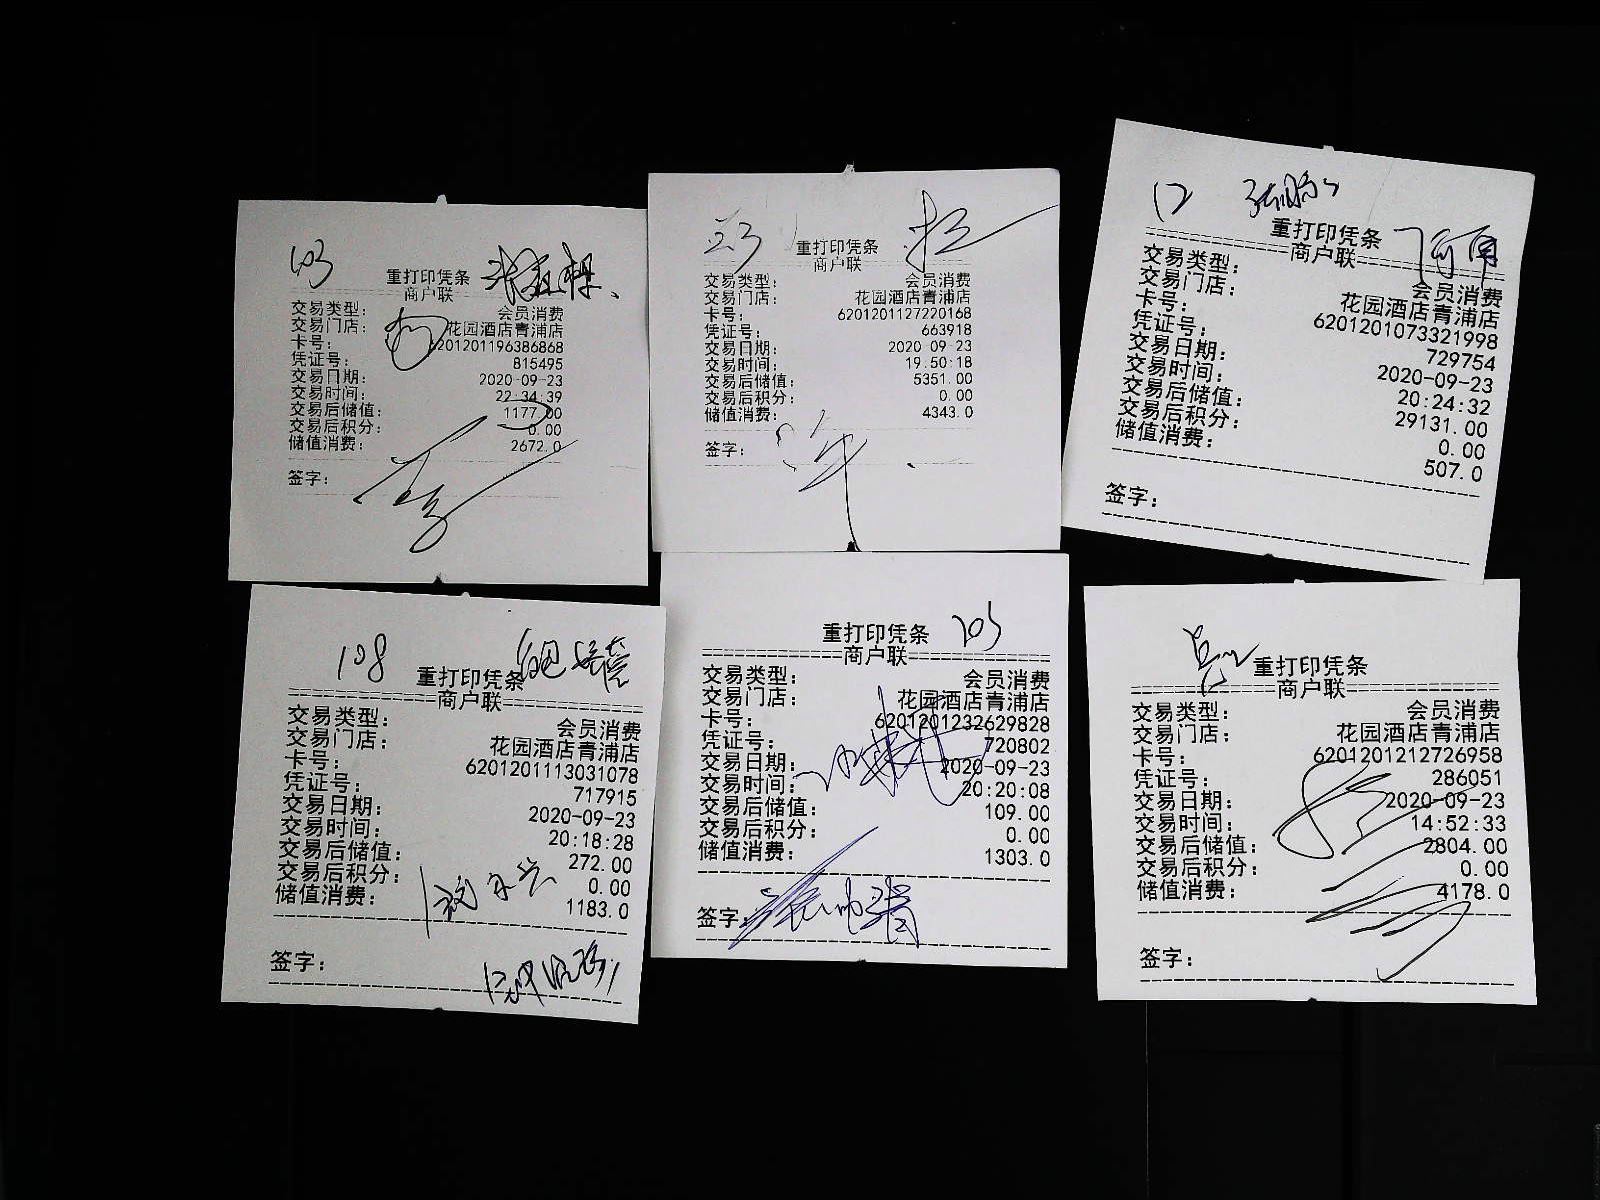 103
重打印凭条
商户联
交易类型: 会员消费
交易门店: 花园酒店青浦店
卡号: 6201201196386868
凭证号: 815495
交易日期: 2020-09-23
交易时间: 22:34:39
交易后储值: 1177.00
交易后积分: 0.00
储值消费: 2672.0
签字:
重打印凭条
商户联
交易类型: 会员消费
交易门店: 花园酒店青浦店
卡号: 6201201127220168
凭证号: 663918
交易日期: 2020-09-23
交易时间: 19:50:18
交易后储值: 5351.00
交易后积分: 0.00
储值消费: 4343.0
签字:
12
重打印凭条
商户联
交易类型: 会员消费
交易门店: 花园酒店青浦店
卡号: 6201201073321998
凭证号: 729754
交易日期: 2020-09-23
交易时间: 20:24:32
交易后储值: 29131.00
交易后积分: 0.00
储值消费: 507.0
签字:
108
重打印凭条
商户联
交易类型: 会员消费
交易门店: 花园酒店青浦店
卡号: 6201201113031078
凭证号: 717915
交易日期: 2020-09-23
交易时间: 20:18:28
交易后储值: 272.00
交易后积分: 0.00
储值消费: 1183.0
签字:
重打印凭条
商户联
交易类型: 会员消费
交易门店: 花园酒店青浦店
卡号: 6201201232629828
凭证号: 720802
交易日期: 2020-09-23
交易时间: 20:20:08
交易后储值: 109.00
交易后积分: 0.00
储值消费: 1303.0
签字:
重打印凭条
商户联
交易类型: 会员消费
交易门店: 花园酒店青浦店
卡号: 6201201212726958
凭证号: 286051
交易日期: 2020-09-23
交易时间: 14:52:33
交易后储值: 2804.00
交易后积分: 0.00
储值消费: 4178.0
签字: